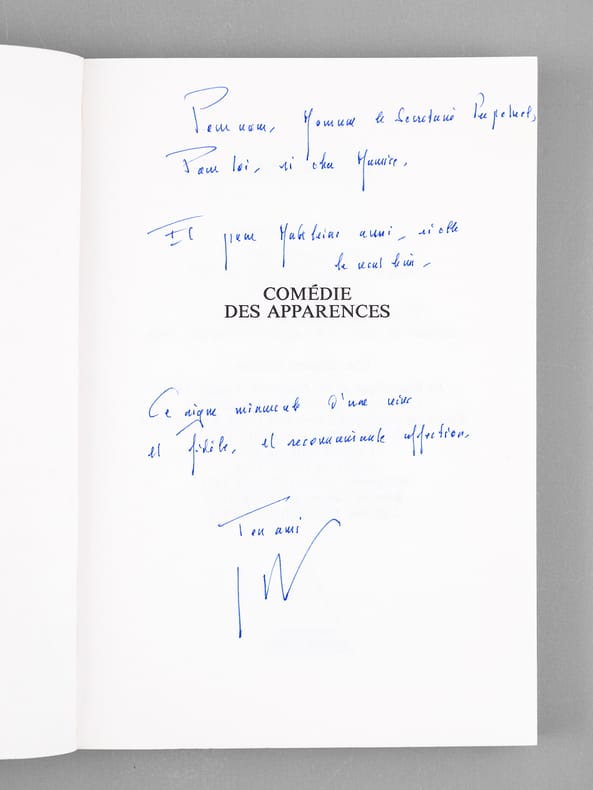 Pour vous, Monsieur le Secrétaire Perpétuel,
Pour toi, si cher Maurice,
Et pour Madeleine aussi, si elle
le veut bien,
COMÉDIE
DES APPARENCES
Ce signe minuscule d'une vive
et fidèle, et reconnaissante affection,
Ton ami